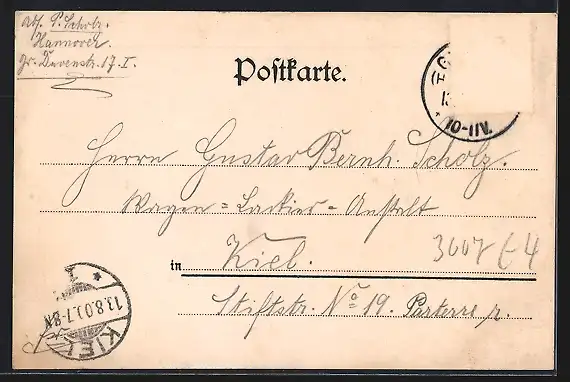 Abs. P. Scholz.
Hannover
Gr. Duvenstr. 17. I.
Postkarte.
10-11V.
Herrn Gustav Bernh. Scholz.
Wagen=Lackier-Anstalt
in Kiel.
3007 64
Stiftstr. No 19. Parterre r.
KIEL
13.8.0
7-8N
1